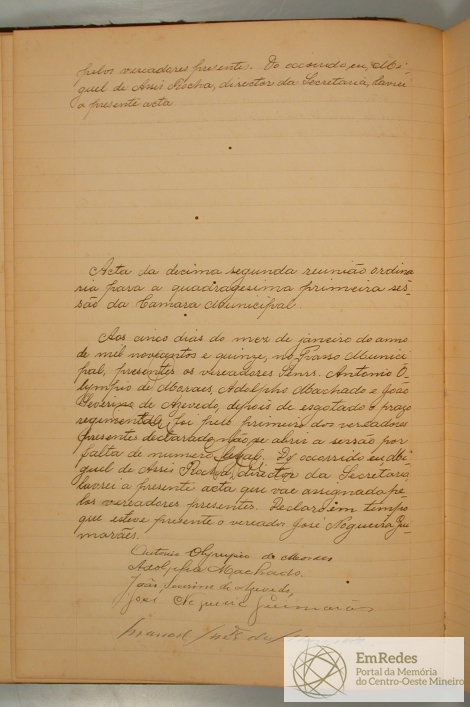 pelos vereadores presentes. Do occorrido, eu, Mi-
guel de Assis Rocha, director da Secretaria, lavrei
a presente acta
Acta da decima segunda reunião ordina
ria para a quadragesima primeira ses-
são da Camara Municipal.
Aos cinco dias do mez de janeiro do anno
de mil novecentos e quinze, no Passo Munici
pal, presentes os vereadores Senrs. Antonio O-
lympio de Moraes, Adolpho Machado e João
Severino de Azevedo, depois de esgotado o prazo
regimental, foi pelo primeiro dos vereadores
presentes declarado não se abrir a sessão por
falta de numero legal. Do occorrido eu, Mi-
guel de Assis Rocha, director da Secretaria
lavrei a presente acta que vae assignada pe-
los vereadores presentes. Declaro em tempo
que esteve presente o vereador José Nogueira Gui
marães.
Antonio Olympio de Moraes
Adolpho Machado.
João Severino de Azevedo,
José Nogueira Guimarães
Manoel
EmRedes
Portal da Memória
do Centro-Oeste Mineiro